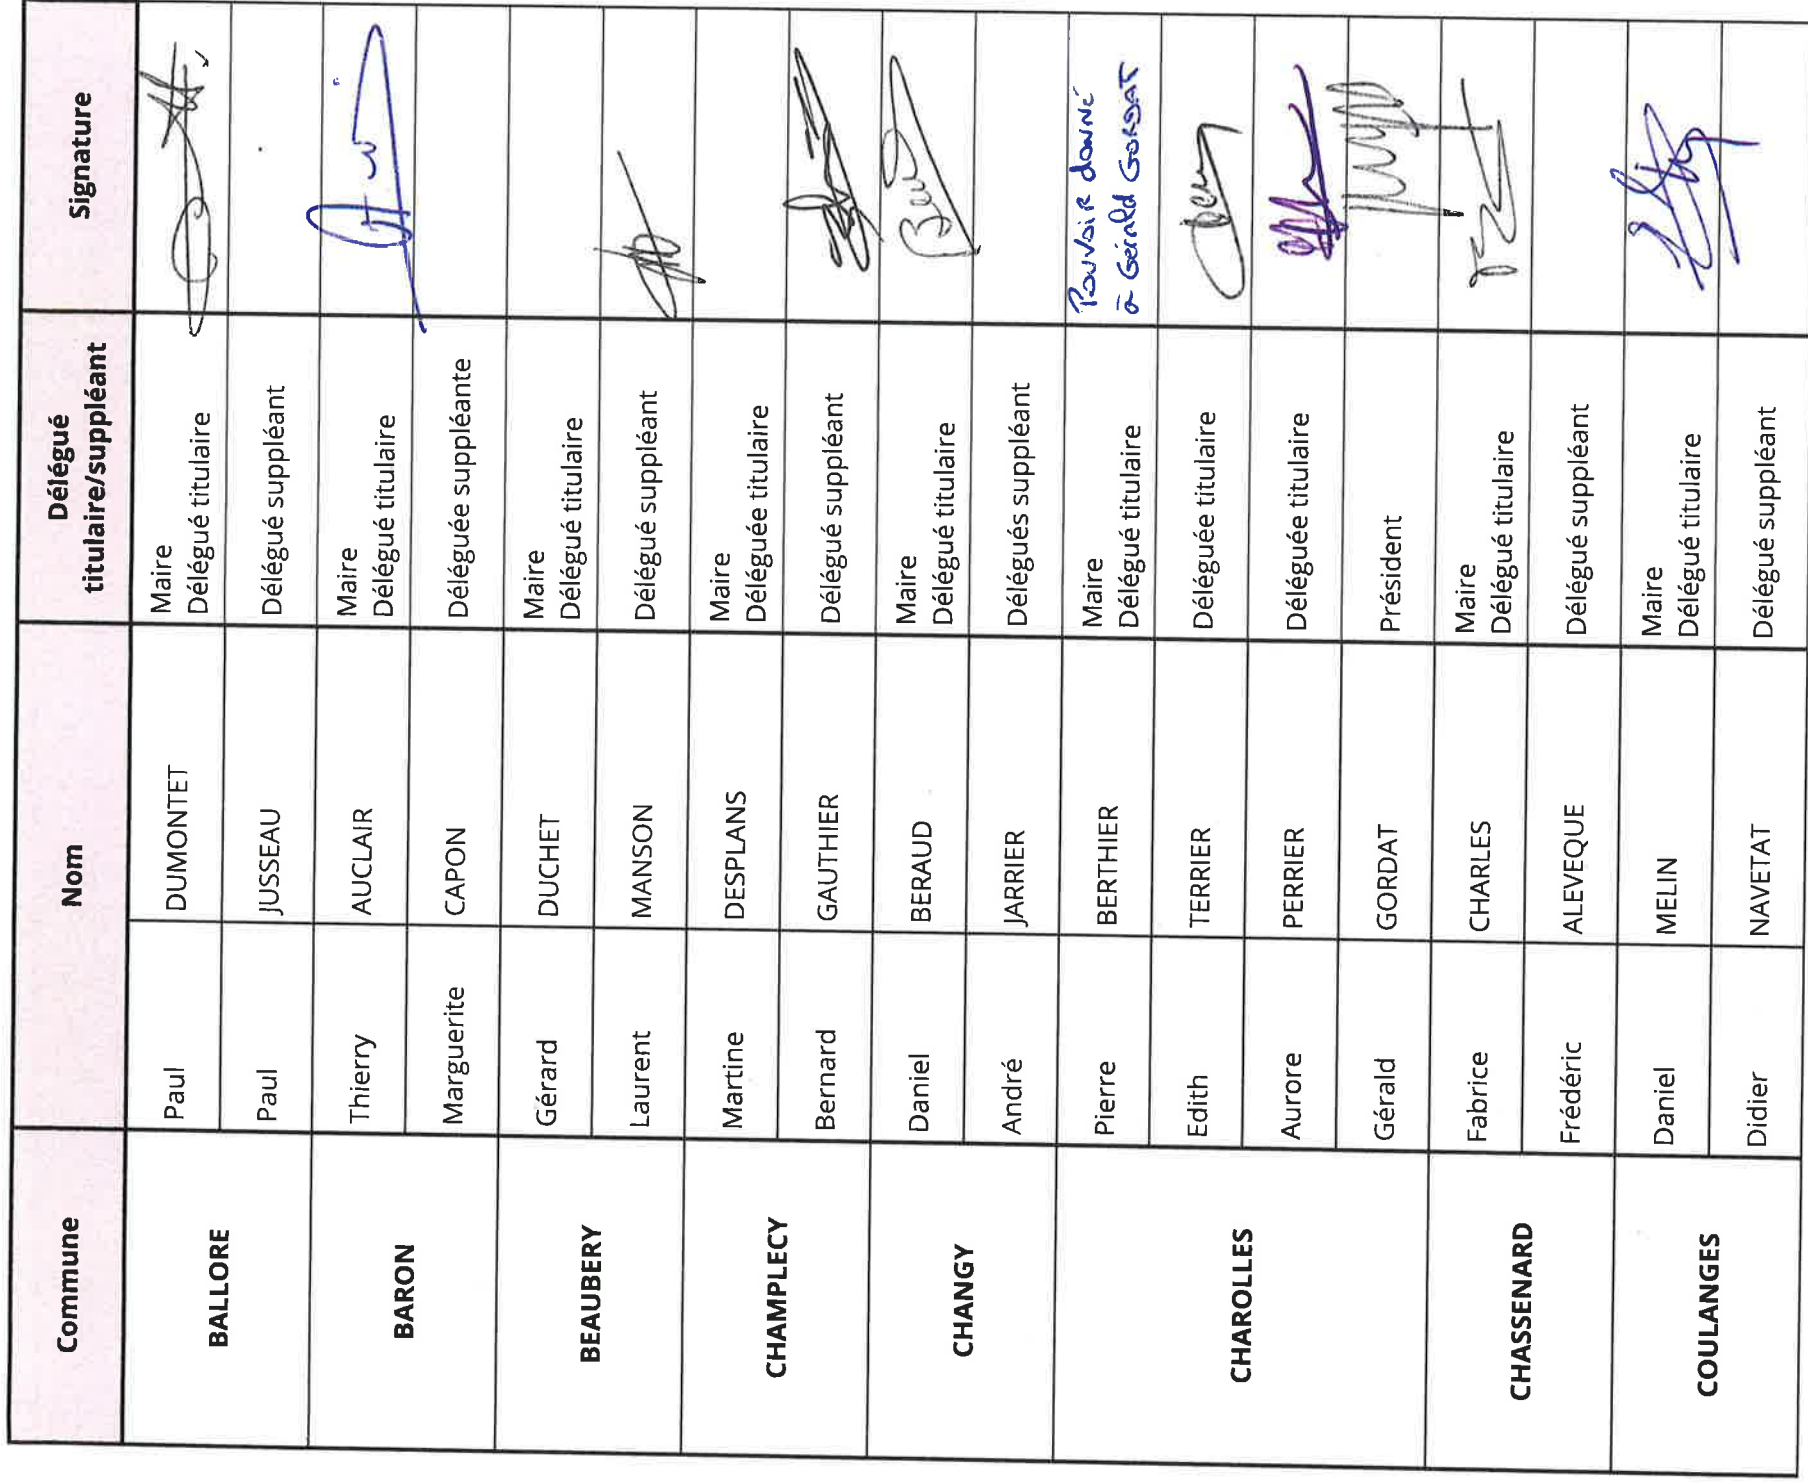 Commune Nom Délégué
titulaire/suppléant Signature
BALLORE Paul DUMONTET Maire
Délégué titulaire
Paul JUSSEAU Délégué suppléant
BARON Thierry AUCLAIR Maire
Délégué titulaire
Marguerite CAPON Déléguée suppléante
BEAUBERY Gérard DUCHET Maire
Délégué titulaire
Laurent MANSON Délégué suppléant
CHAMPLECY Martine DESPLANS Maire
Déléguée titulaire
Bernard GAUTHIER Délégué suppléant
CHANGY Daniel BERAUD Maire
Délégué titulaire
André JARRIER Délégués suppléant
CHAROLLES Pierre BERTHIER Maire
Délégué titulaire
Pouvoir donné
à Gérald GORDAT
Edith TERRIER Déléguée titulaire
Aurore PERRIER Déléguée titulaire
Gérald GORDAT Président
CHASSENARD Fabrice CHARLES Maire
Délégué titulaire
Frédéric ALEVEQUE Délégué suppléant
COULANGES Daniel MELIN Maire
Délégué titulaire
Didier NAVETAT Délégué suppléant